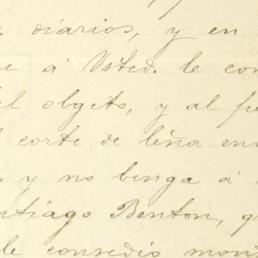 diarios, y en
e á Usted. le con
el obgeto, y al pe
l corte de leña en
y no benga á
ntiago Benton, q
le conredio mont